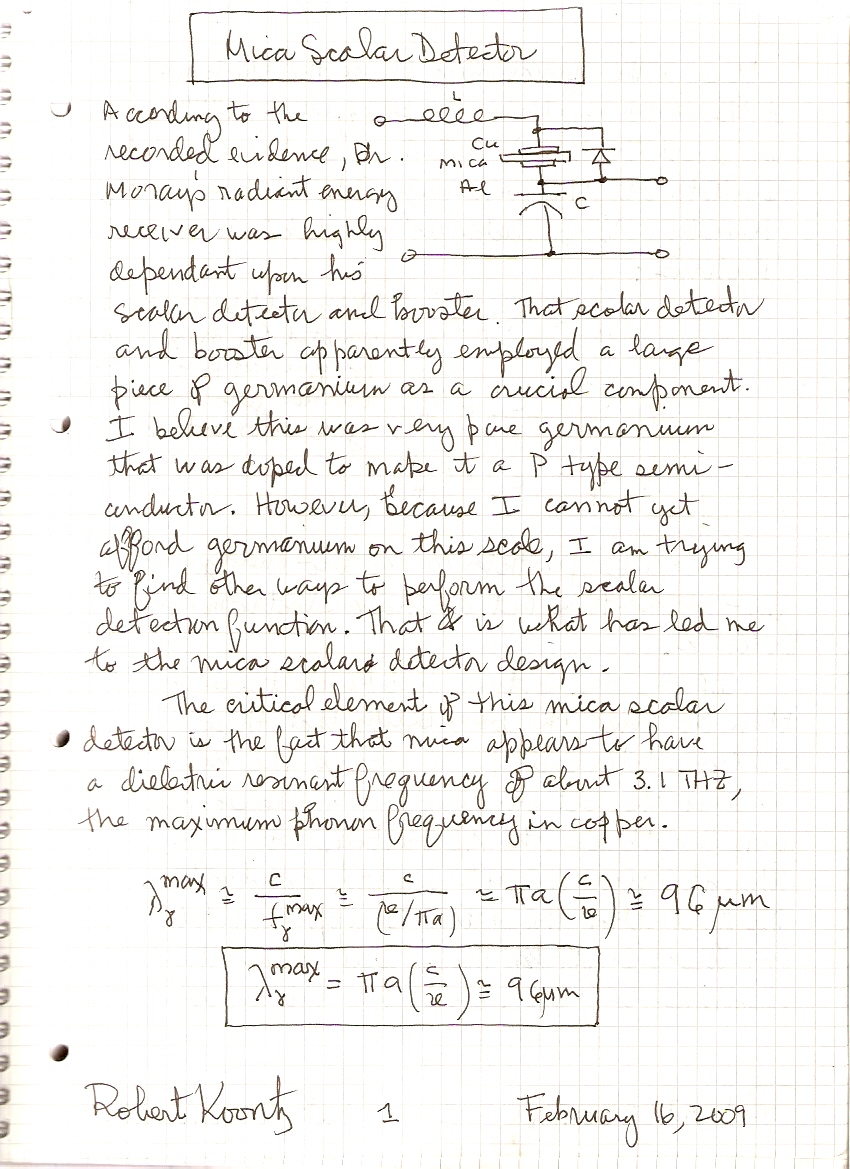 Mica Scalar Detector
According to the
recorded evidence, Dr.
Moray's radiant energy
receiver was highly
dependant upon his
L
Cu
Mica
Al
C
scalar detector and booster. That scalar detector
and booster apparently employed a large
piece of germanium as a crucial component.
I believe this was very pure germanium
that was doped to make it a P type semi-
conductor. However, because I cannot yet
afford germanium on this scale, I am trying
to find other ways to perform the scalar
detection function. That is what has led me
to the mica scalar detector design.
The critical element of this mica scalar
detector is the fact that mica appears to have
a dielectric resonant frequency of about 3.1 THz,
the maximum phonon frequency in copper.
λγ^max ≅ c / fγ^max ≅ c / (v/πa) ≅ πa (c/v) ≅ 96 μm
λγ^max = πa (c/v) ≅ 96μm
Robert Koontz 1 February 16, 2009